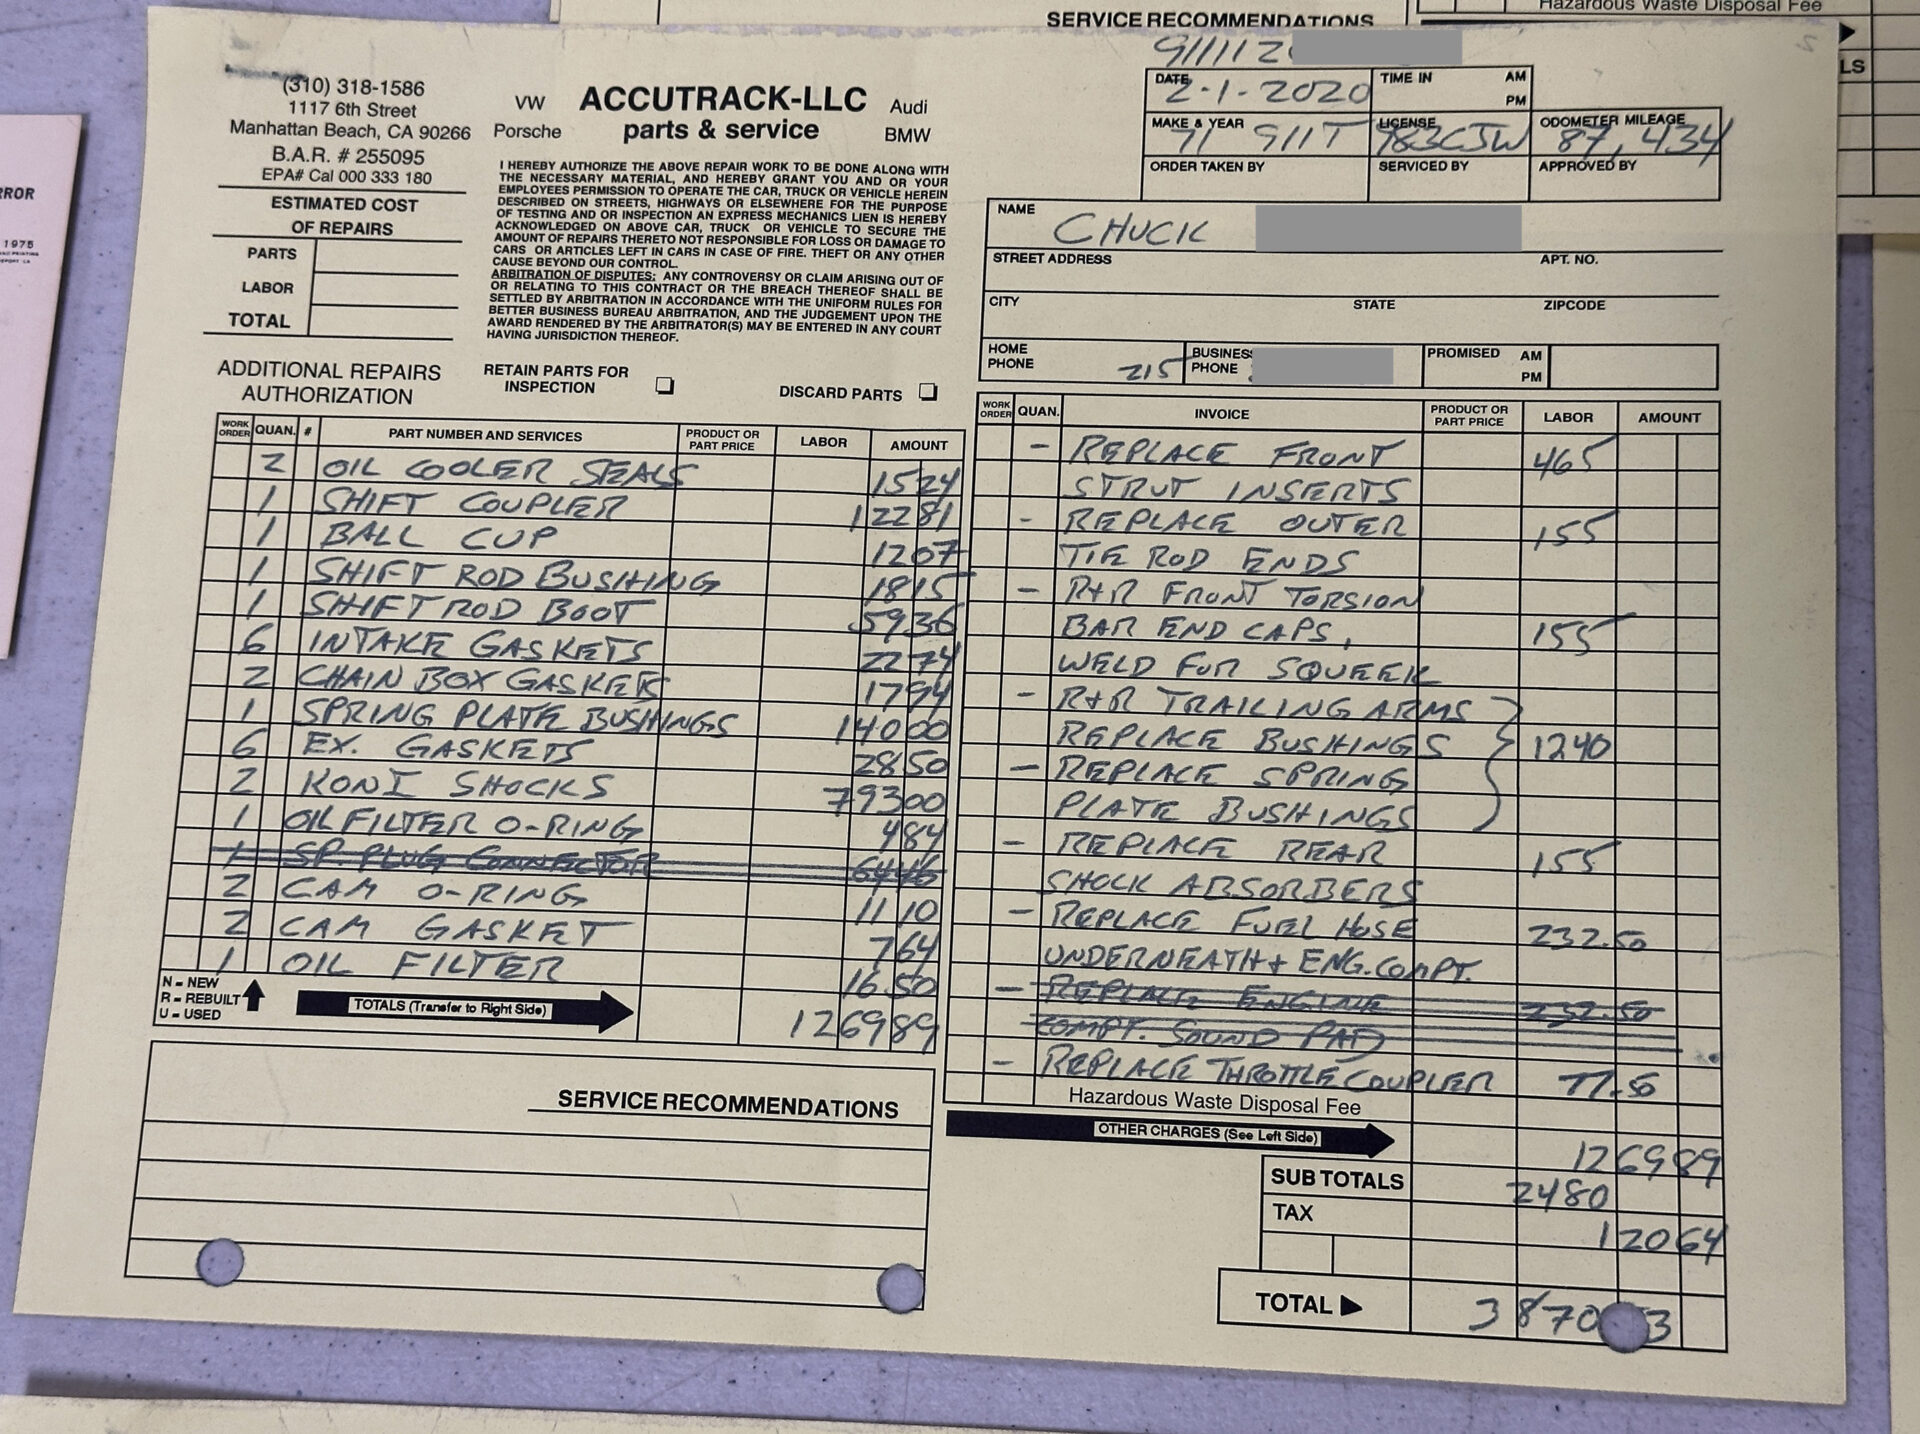 Hazardous Waste Disposal Fee
SERVICE RECOMMENDATIONS
LS
RROR
1975
(310) 318-1586
1117 6th Street
Manhattan Beach, CA 90266
B.A.R. # 255095
EPA# Cal 000 333 180
ESTIMATED COST
OF REPAIRS
PARTS
LABOR
TOTAL
VW ACCUTRACK-LLC Audi
Porsche parts & service BMW
I HEREBY AUTHORIZE THE ABOVE REPAIR WORK TO BE DONE ALONG WITH
THE NECESSARY MATERIAL, AND HEREBY GRANT YOU AND OR YOUR
EMPLOYEES PERMISSION TO OPERATE THE CAR, TRUCK OR VEHICLE HEREIN
DESCRIBED ON STREETS, HIGHWAYS OR ELSEWHERE FOR THE PURPOSE
OF TESTING AND OR INSPECTION AN EXPRESS MECHANICS LIEN IS HEREBY
ACKNOWLEDGED ON ABOVE CAR, TRUCK OR VEHICLE TO SECURE THE
AMOUNT OF REPAIRS THERETO NOT RESPONSIBLE FOR LOSS OR DAMAGE TO
CARS OR ARTICLES LEFT IN CARS IN CASE OF FIRE. THEFT OR ANY OTHER
CAUSE BEYOND OUR CONTROL.
ARBITRATION OF DISPUTES: ANY CONTROVERSY OR CLAIM ARISING OUT OF
OR RELATING TO THIS CONTRACT OR THE BREACH THEREOF SHALL BE
SETTLED BY ARBITRATION IN ACCORDANCE WITH THE UNIFORM RULES FOR
BETTER BUSINESS BUREAU ARBITRATION, AND THE JUDGEMENT UPON THE
AWARD RENDERED BY THE ARBITRATOR(S) MAY BE ENTERED IN ANY COURT
HAVING JURISDICTION THEREOF.
91112
DATE 2-1-2020 TIME IN AM PM
MAKE & YEAR 71 911T LICENSE 983CJW ODOMETER MILEAGE 87,434
ORDER TAKEN BY SERVICED BY APPROVED BY
NAME CHUCK
STREET ADDRESS APT. NO.
CITY STATE ZIPCODE
HOME PHONE 215 BUSINESS PHONE PROMISED AM PM
ADDITIONAL REPAIRS
AUTHORIZATION
RETAIN PARTS FOR
INSPECTION
DISCARD PARTS
WORK ORDER QUAN. # PART NUMBER AND SERVICES PRODUCT OR PART PRICE LABOR AMOUNT
2 OIL COOLER SEALS 15 24
1 SHIFT COUPLER 122 81
1 BALL CUP 12 07
1 SHIFT ROD BUSHING 18 15
1 SHIFT ROD BOOT 59 36
6 INTAKE GASKETS 22 74
2 CHAIN BOX GASKETS 17 94
1 SPRING PLATE BUSHINGS 140 00
6 EX. GASKETS 28 50
2 KONI SHOCKS 793 00
1 OIL FILTER O-RING 4 84
1 SP. PLUG CONNECTOR 64 46
2 CAM O-RING 11 10
2 CAM GASKET 7 64
1 OIL FILTER 16 50
N - NEW
R - REBUILT
U - USED
TOTALS (Transfer to Right Side) 1269 89
SERVICE RECOMMENDATIONS
WORK ORDER QUAN. INVOICE PRODUCT OR PART PRICE LABOR AMOUNT
- REPLACE FRONT 465
STRUT INSERTS
- REPLACE OUTER 155
TIE ROD ENDS
- R+R FRONT TORSION
BAR END CAPS, 155
WELD FOR SQUEEK
- R+R TRAILING ARMS
REPLACE BUSHINGS 1240
- REPLACE SPRING
PLATE BUSHINGS
- REPLACE REAR 155
SHOCK ABSORBERS
- REPLACE FUEL HOSE 232.50
UNDERNEATH + ENG. COMPT.
- REPLACE ENGINE 232.50
COMPT. SOUND PAD
- REPLACE THROTTLE COUPLER 77.50
Hazardous Waste Disposal Fee
OTHER CHARGES (See Left Side) 1269 89
SUB TOTALS 2480
TAX 120 64
TOTAL 3870 3